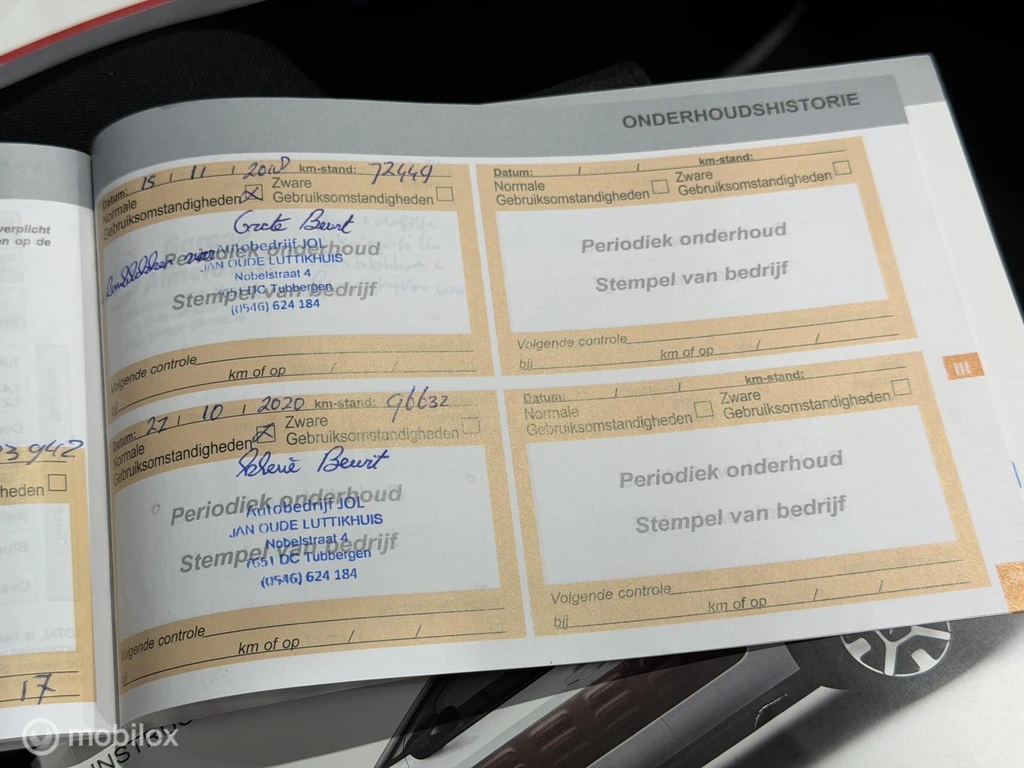 ONDERHOUDSHISTORIE
Datum: 15 / 11 / 2018 km-stand: 72449
Normale
Gebruiksomstandigheden
Zware
Gebruiksomstandigheden
Grote Beurt
Periodiek onderhoud
Autobedrijf JOL
JAN OUDE LUTTIKHUIS
Nobelstraat 4
Stempel van bedrijf
7651 DC Tubbergen
(0546) 624 184
Volgende controle
bij km of op / /
Datum: / / km-stand:
Normale
Gebruiksomstandigheden
Zware
Gebruiksomstandigheden
Periodiek onderhoud
Stempel van bedrijf
Volgende controle
bij km of op / /
Datum: 27 / 10 / 2020 km-stand: 96632
Normale
Gebruiksomstandigheden
Zware
Gebruiksomstandigheden
Beurt
Periodiek onderhoud
Autobedrijf JOL
JAN OUDE LUTTIKHUIS
Nobelstraat 4
Stempel van bedrijf
7651 DC Tubbergen
(0546) 624 184
Volgende controle
km of op / /
Datum: / / km-stand:
Normale
Gebruiksomstandigheden
Zware
Gebruiksomstandigheden
Periodiek onderhoud
Stempel van bedrijf
Volgende controle
bij km of op / /
III
verplicht
en op de
3 942
heden
17
mobilox